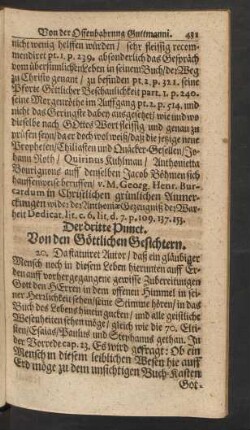 Von der Offenbahrung Guttmanni. 481
nicht wenig helffen würden / sehr fleissig recom-
mendiret pt. 1. p. 239. absonderlich das Gespräch
vom übersinnlichen Leben in seinem Buch / der Weg
zu Christo genant / zu befinden pt. 2. p. 321. seine
Pforte Göttlicher Beschauligkeit part. 1. p. 240.
seine Morgenröthe im Auffgang pt. 2. p. 514. und
nicht das Geringste dabey ausgesetzet / wie und wo
dieselbe nach Gottes Wort fleissig und genau zu
prüfen seyn / daer doch weiß / daß die jetzige neue
Propheten / Chiliasten und Quäcker-Gesellen / Jo-
hann Roth / Quirinus Kuhlman / Anthonietta
Bourignons auff denselben Jacob Böhmen sich
hauffenweise beruffen / v. M. Georg. Henr. Bur-
cardum in Christlichen gründlichen Anmer-
ckungen wider der Anthoniæ Gezeugniß der War-
heit Dedicat. lit. c. 6. lit. d. 7. p. 109. 137. 153.
Der dritte Punct.
Von den Göttlichen Gesichtern.
20. Da statuiret Autor / daß ein gläubiger
Mensch noch in diesem Leben hierunten auff Er-
den auff vorhergegangene gewisse Zubereitungen
Gott den HErren in dem offenen Himmel in sei-
ner Herrlichkeit sehen / seine Stimme hören / in das
Buch des Lebens hinein gucken / und alle geistliche
Wesenheiten sehen möge / gleich wie die 70. Elti-
sten / Esaias / Paulus und Stephanus gethan. In
der Vorrede cap. 23. Es wird gefragt: Ob ein
Mensch in diesem leiblichen Wesen hie auff
Erd möge zu dem unsichtigen Buch-Kasten
Got-